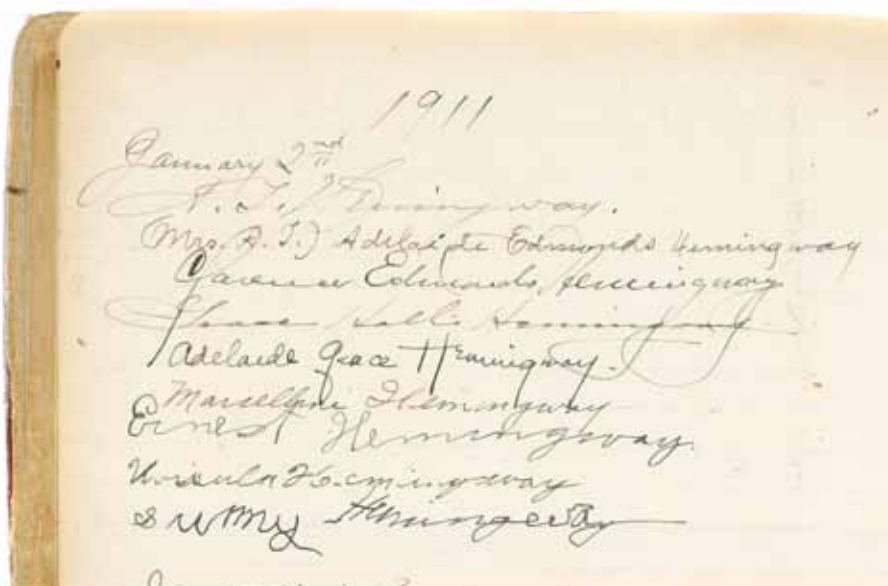 1911
January 2nd
A. T. Hemingway.
(Mrs. A. T.) Adelaide Edmonds Hemingway
Clarence Edmonds Hemingway
Grace Hall Hemingway
Adelaide Grace Hemingway.
Marcelline Hemingway
Ernest Hemingway.
Ursula Hemingway
sunny Hemingway